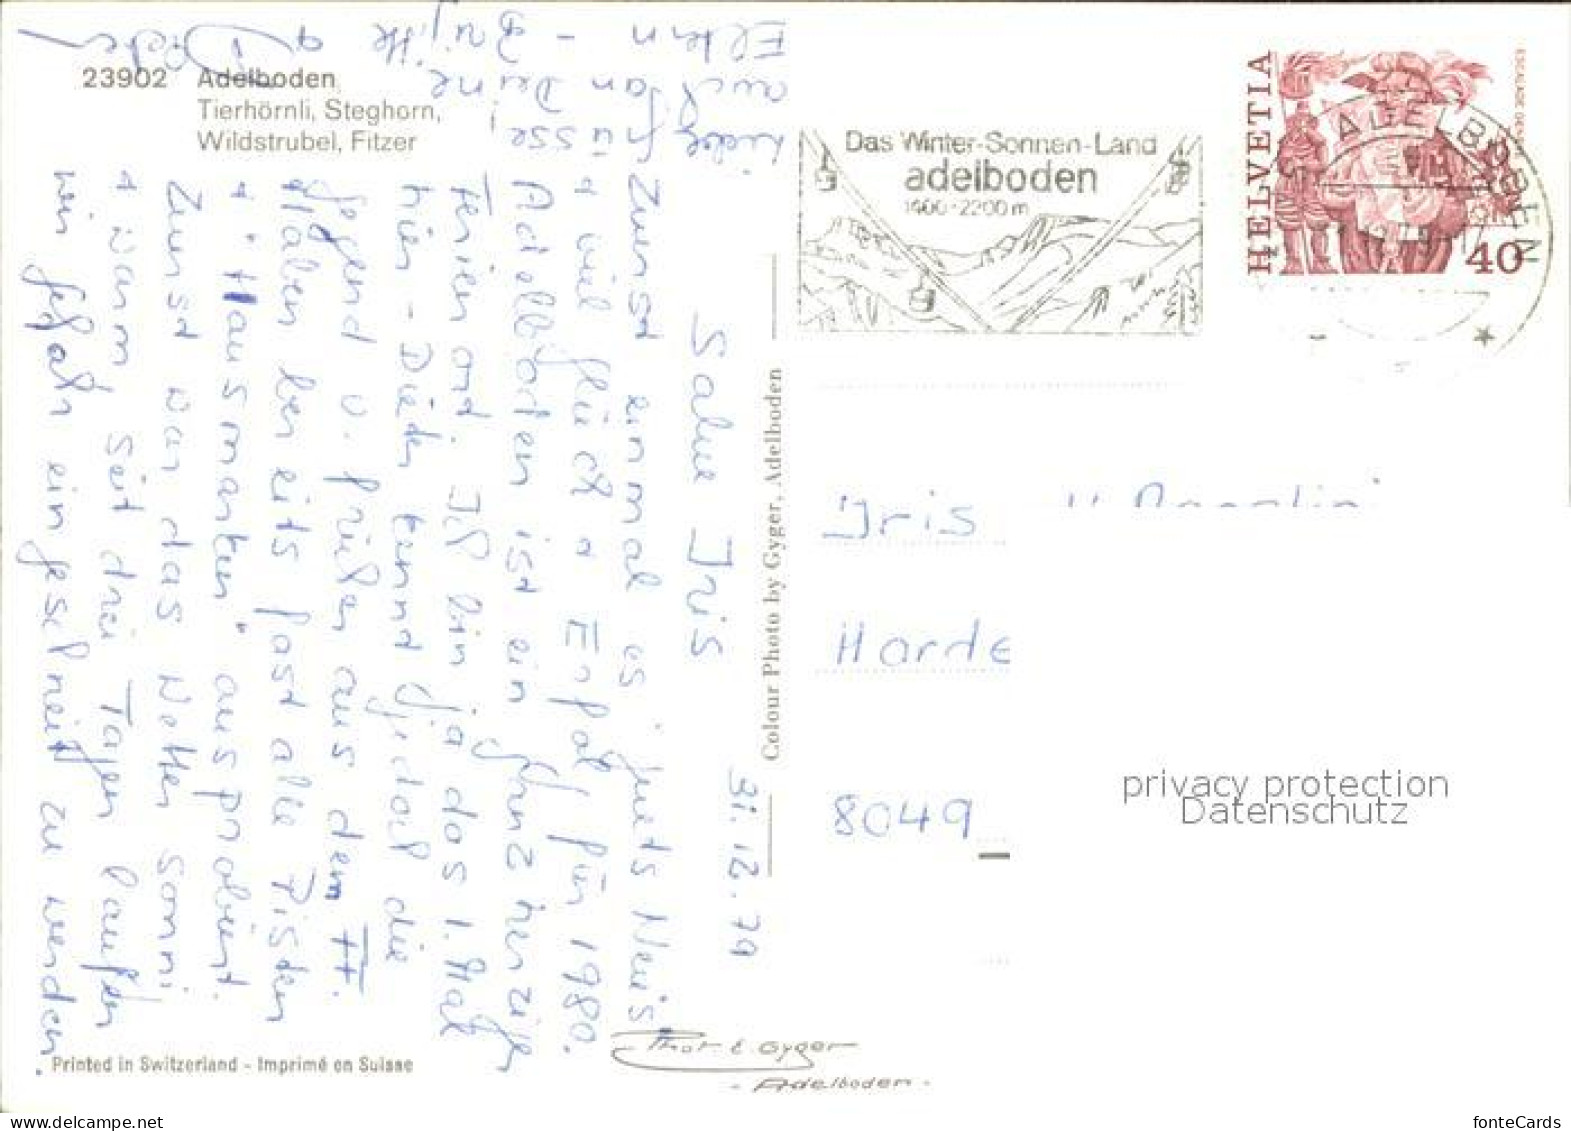 23902 Adelboden
Tierhörnli, Steghorn,
Wildstrubel, Fitzer
31.12.79
Salue Iris
Zuerst einmal es "guets Neu's"
+ viel Glück + Erfolg für 1980.
Adelboden ist ein ganz herziger
Ferienort. Ich bin ja das 1. Mal
hier - Dieter kennt jedoch die
Gegend v. früher aus dem FF.
Haben bereits fast alle Pisten
+ "Hausmarken" ausprobiert.
Zuerst war das Wetter sonnig
+ warm seit drei Tagen laufen
wir Gefahr eingeschneit zu werden.
Liebi Grüsse
auch an Deine
Eltern - Brigitte
Colour Photo by Gyger, Adelboden
Printed in Switzerland - Imprimé en Suisse
Phot. E. Gyger
- Adelboden -
Das Winter-Sonnen-Land
adelboden
1400-2200 m
HELVETIA
40
ADELBODEN
Iris
Harde
8049
privacy protection
Datenschutz
www.delcampe.net
fonteCards